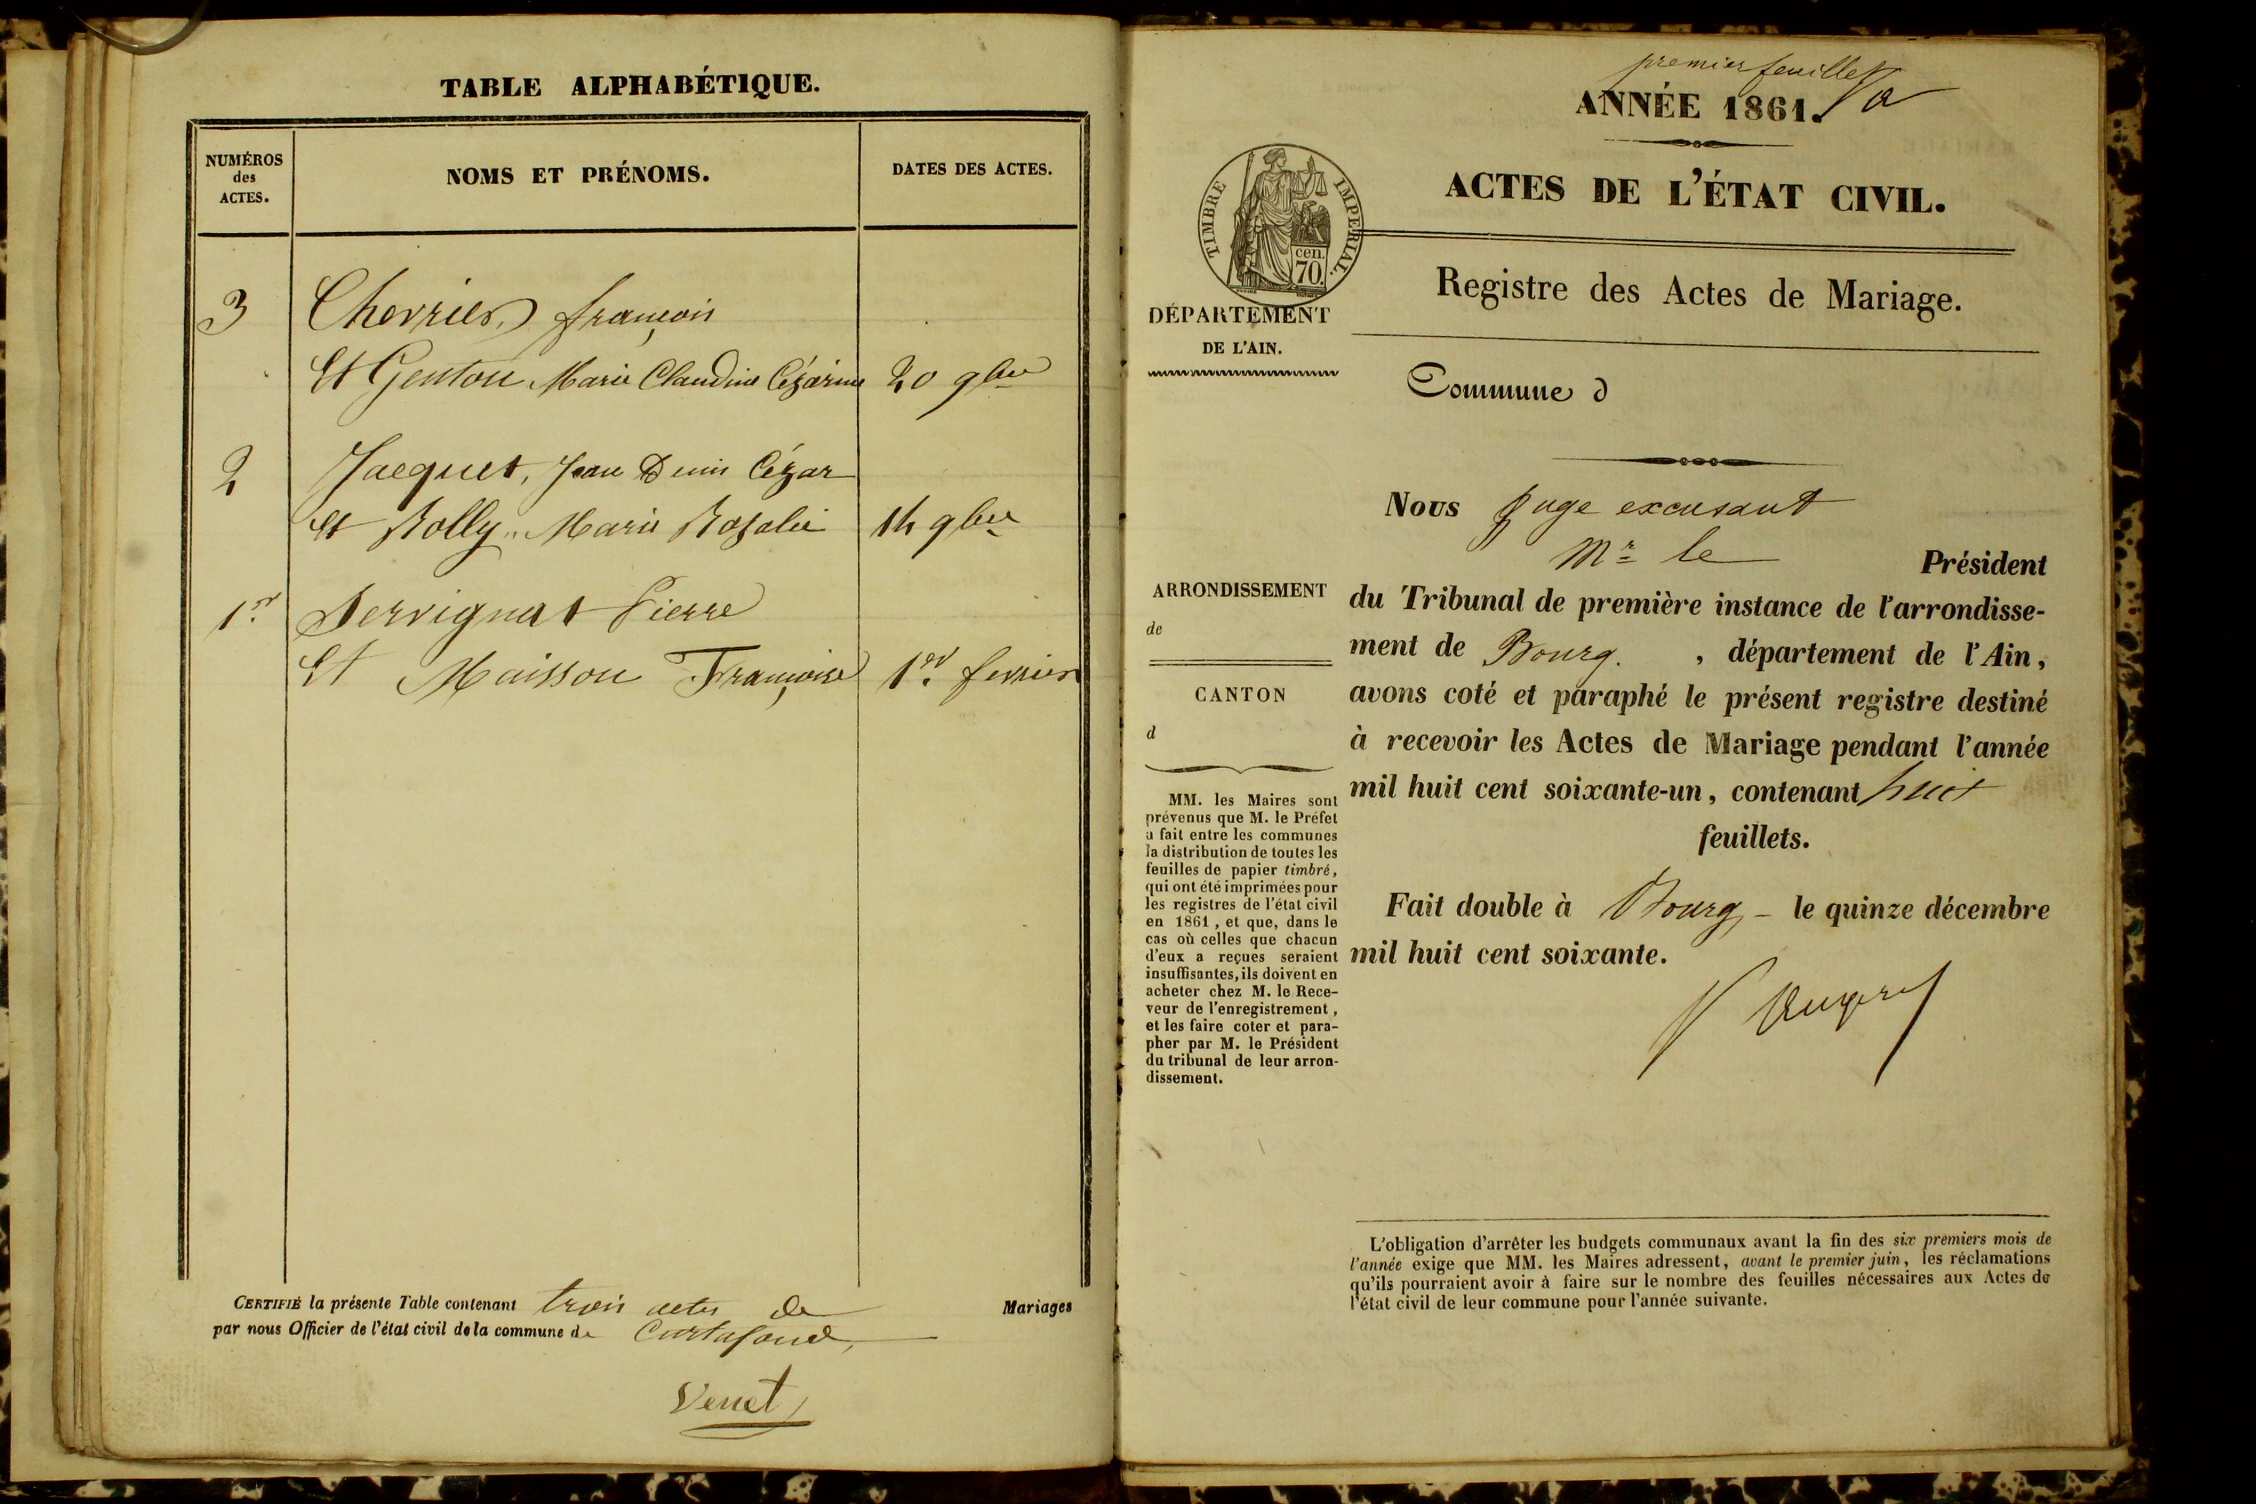 TABLE ALPHABÉTIQUE.
NUMÉROS
des
ACTES.
NOMS ET PRÉNOMS.
DATES DES ACTES.
3 Chevrier, françois
Et Genton Marie Claudine Cézarine 20 9bre
2 Jacquet, Jean Denis Cézar
et Rolly Marie Rosalie 14 9bre
1er Servignat Pierre
Et Maisson Françoise 1er fevrier
CERTIFIÉ la présente Table contenant trois actes de Mariages
par nous Officier de l'état civil de la commune de Curtafond,
Venet
premier feuillet
ANNÉE 1861.
ACTES DE L'ÉTAT CIVIL.
TIMBRE IMPERIAL.
cen.
70
DÉPARTEMENT
DE L'AIN.
Registre des Actes de Mariage.
Commune d
Nous juge excusant
Mr le Président
ARRONDISSEMENT
de
CANTON
d
du Tribunal de première instance de l'arrondisse-
ment de Bourg. , département de l'Ain,
avons coté et paraphé le présent registre destiné
à recevoir les Actes de Mariage pendant l'année
mil huit cent soixante-un, contenant huit
feuillets.
Fait double à Bourg - le quinze décembre
mil huit cent soixante.
MM. les Maires sont
prévenus que M. le Préfet
a fait entre les communes
la distribution de toutes les
feuilles de papier timbré,
qui ont été imprimées pour
les registres de l'état civil
en 1861, et que, dans le
cas où celles que chacun
d'eux a reçues seraient
insuffisantes, ils doivent en
acheter chez M. le Rece-
veur de l'enregistrement,
et les faire coter et para-
pher par M. le Président
du tribunal de leur arron-
dissement.
L'obligation d'arrêter les budgets communaux avant la fin des six premiers mois de
l'année exige que MM. les Maires adressent, avant le premier juin, les réclamations
qu'ils pourraient avoir à faire sur le nombre des feuilles nécessaires aux Actes de
l'état civil de leur commune pour l'année suivante.